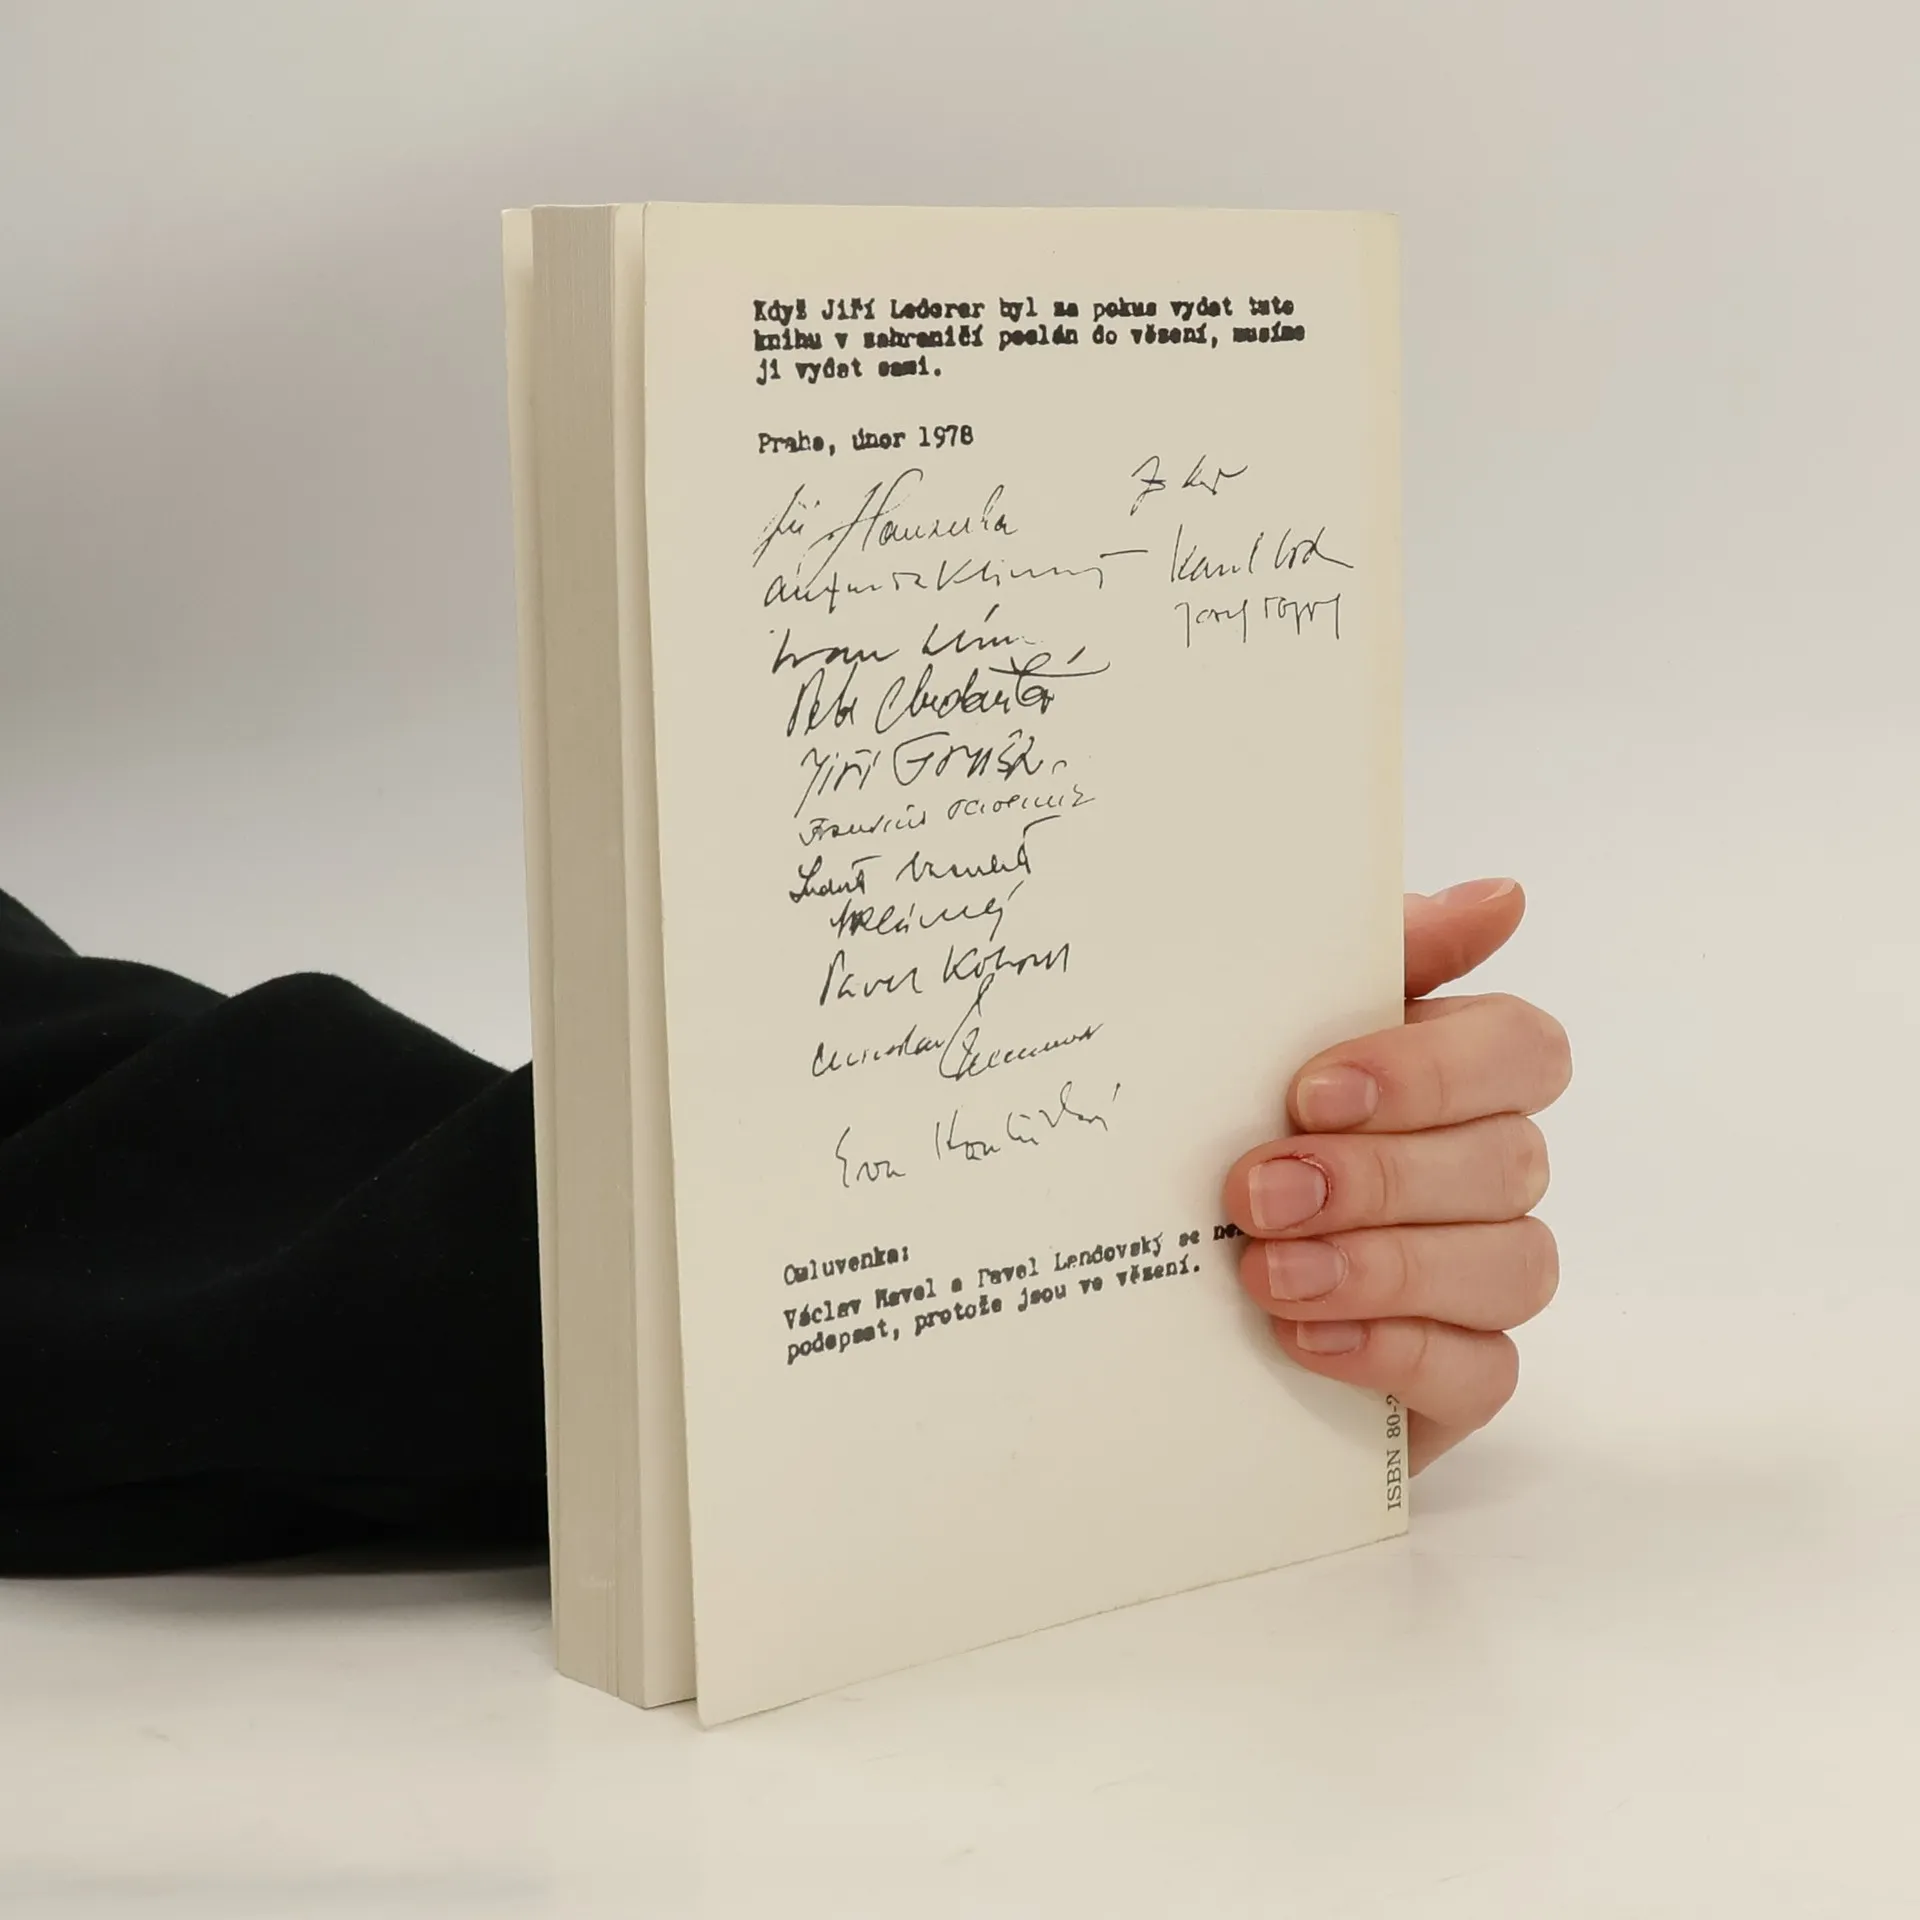 Když Jiří Lederer byl za pokus vydat tuto
knihu v zahraničí poslán do vězení, musíme
ji vydat sami.
Praha, únor 1978
Jiří Hanzelka
Ivan Klíma
Petr Chudožilov
Jiří Gruša
František Pavlíček
Ludvík Vaculík
Pavel Kohout
Eva Kantůrková
Karel
Josef Topol
Omluvenka:
Václav Havel a Pavel Landovský se
podepsat, protože jsou ve vězení.
ISBN 80-2